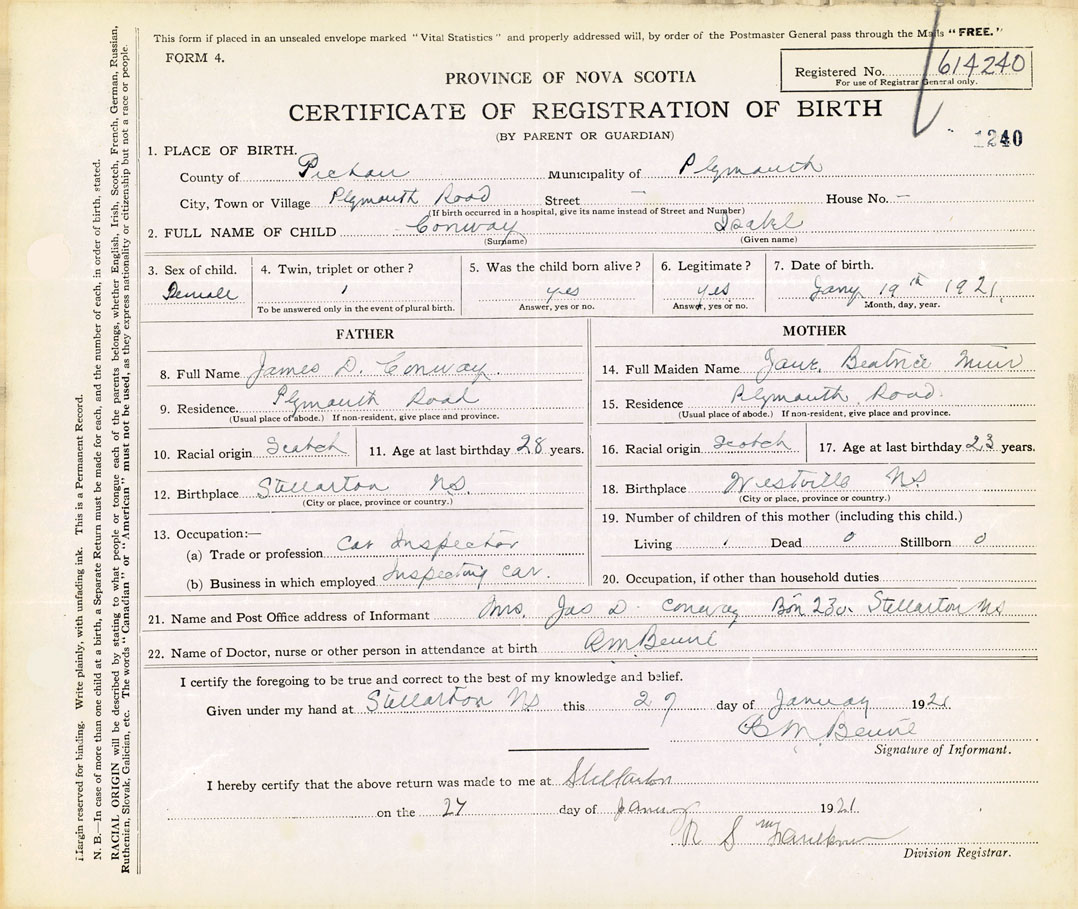 This form if placed in an unsealed envelope marked "Vital Statistics" and properly addressed will, by order of the Postmaster General pass through the Mails "FREE."
FORM 4.
Registered No. 614240
For use of Registrar General only.
PROVINCE OF NOVA SCOTIA
CERTIFICATE OF REGISTRATION OF BIRTH
(BY PARENT OR GUARDIAN)
1240
1. PLACE OF BIRTH.
County of Pictou Municipality of Plymouth
City, Town or Village Plymouth Road Street — House No. —
(If birth occurred in a hospital, give its name instead of Street and Number)
2. FULL NAME OF CHILD Conway Isabel
(Surname) (Given name)
3. Sex of child. 4. Twin, triplet or other? 5. Was the child born alive? 6. Legitimate? 7. Date of birth.
Female yes yes Jany 19th 1921.
To be answered only in the event of plural birth. Answer, yes or no. Answer, yes or no. Month, day, year.
FATHER
8. Full Name James D. Conway
9. Residence. Plymouth Road
(Usual place of abode.) If non-resident, give place and province.
10. Racial origin Scotch 11. Age at last birthday 28 years.
12. Birthplace Stellarton NS.
(City or place, province or country.)
13. Occupation:—
(a) Trade or profession Car Inspector
(b) Business in which employed Inspecting car.
MOTHER
14. Full Maiden Name Jane Beatrice Muir
15. Residence Plymouth Road.
(Usual place of abode.) If non-resident, give place and province.
16. Racial origin Scotch 17. Age at last birthday 23 years.
18. Birthplace Westville NS
(City or place, province or country.)
19. Number of children of this mother (including this child.)
Living 1 Dead 0 Stillborn 0
20. Occupation, if other than household duties
21. Name and Post Office address of Informant Mrs. Jas D. Conway Stellarton NS
22. Name of Doctor, nurse or other person in attendance at birth
I certify the foregoing to be true and correct to the best of my knowledge and belief.
Given under my hand at Stellarton NS this 27 day of January 1921
Signature of Informant.
I hereby certify that the above return was made to me at Stellarton
on the 27 day of January 1921
Division Registrar.
Margin reserved for binding. Write plainly, with unfading ink. This is a Permanent Record.
N. B.—In case of more than one child at a birth, a Separate Return must be made for each, and the number of each, in order of birth, stated.
RACIAL ORIGIN will be described by stating to what people or tongue each of the parents belongs, whether English, Irish, Scotch, French, German, Russian,
Ruthenian, Slovak, Galician, etc. The words "Canadian" or "American" must not be used, as they express nationality or citizenship but not a race or people.